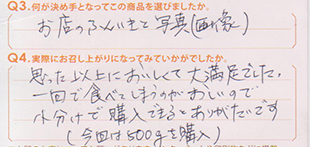 Q3.何が決め手となってこの商品を選びましたか。
お店のふんいきと写真(画像)
Q4.実際にお召し上がりになってみていかがでしたか。
思った以上においしくて大満足でした。
一回で食べてしまうのがおしいので
小分けで購入できるとありがたいです
(今回は500gを購入)